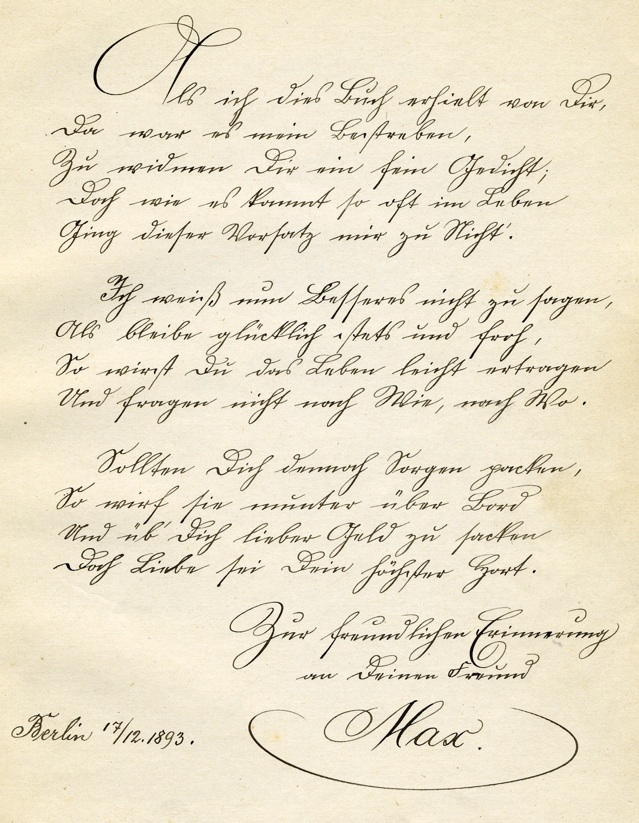 Als ich dies Buch erhielt von Dir,
Da war es mein Bestreben,
Zu widmen Dir ein fein Gedicht;
Doch wie es kommt so oft im Leben
Ging dieser Vorsatz mir zu Nicht'.
Ich weiß nun Besseres nicht zu sagen,
Als bleibe glücklich stets und froh,
So wirst Du das Leben leicht ertragen
Und fragen nicht nach Wie, nach Wo.
Sollten Dich dennoch Sorgen packen,
So wirf sie munter über Bord
Und üb' Dich lieber Geld zu sacken
Doch Liebe sei Dein höchster Hort.
Zur freundlichen Erinnerung
an Deinen Freund
Max.
Berlin 17/12.1893.